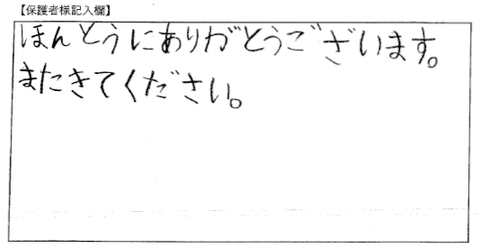 【保護者様記入欄】
ほんとうにありがとうございます。
またきてください。